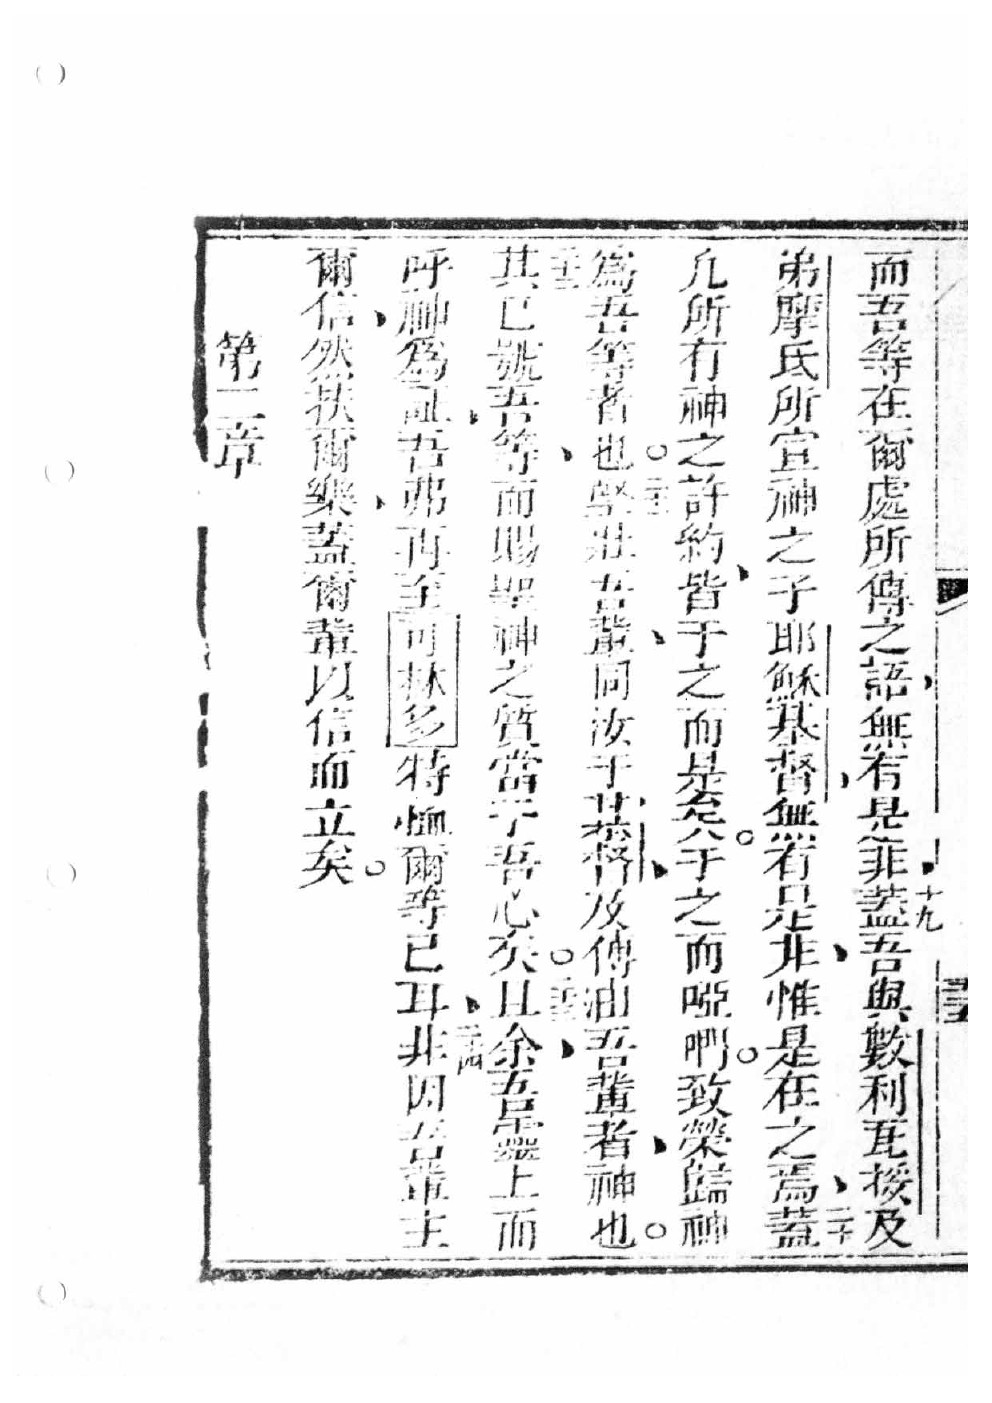 而吾等在爾處所傳之語、無有是非、十九蓋吾與數利瓦掽及
弟摩氐所宣神之子耶穌基督、無有是非、惟是在之焉、二十蓋
凡所有神之許約、皆于之而是、至亽于之而啞們、致榮歸神
為吾等者也。二十一堅壯吾輩、同汝于基督、及傅油吾輩者、神也。
二十二其已號吾等、而賜聖神之質當于吾心矣。二十三且余、吾呈靈上而
呼神為証、吾弗再至可林多、特恤爾等已耳、二十四非因吾輩主
爾信、然扶爾樂、蓋爾輩以信而立矣。
第二章